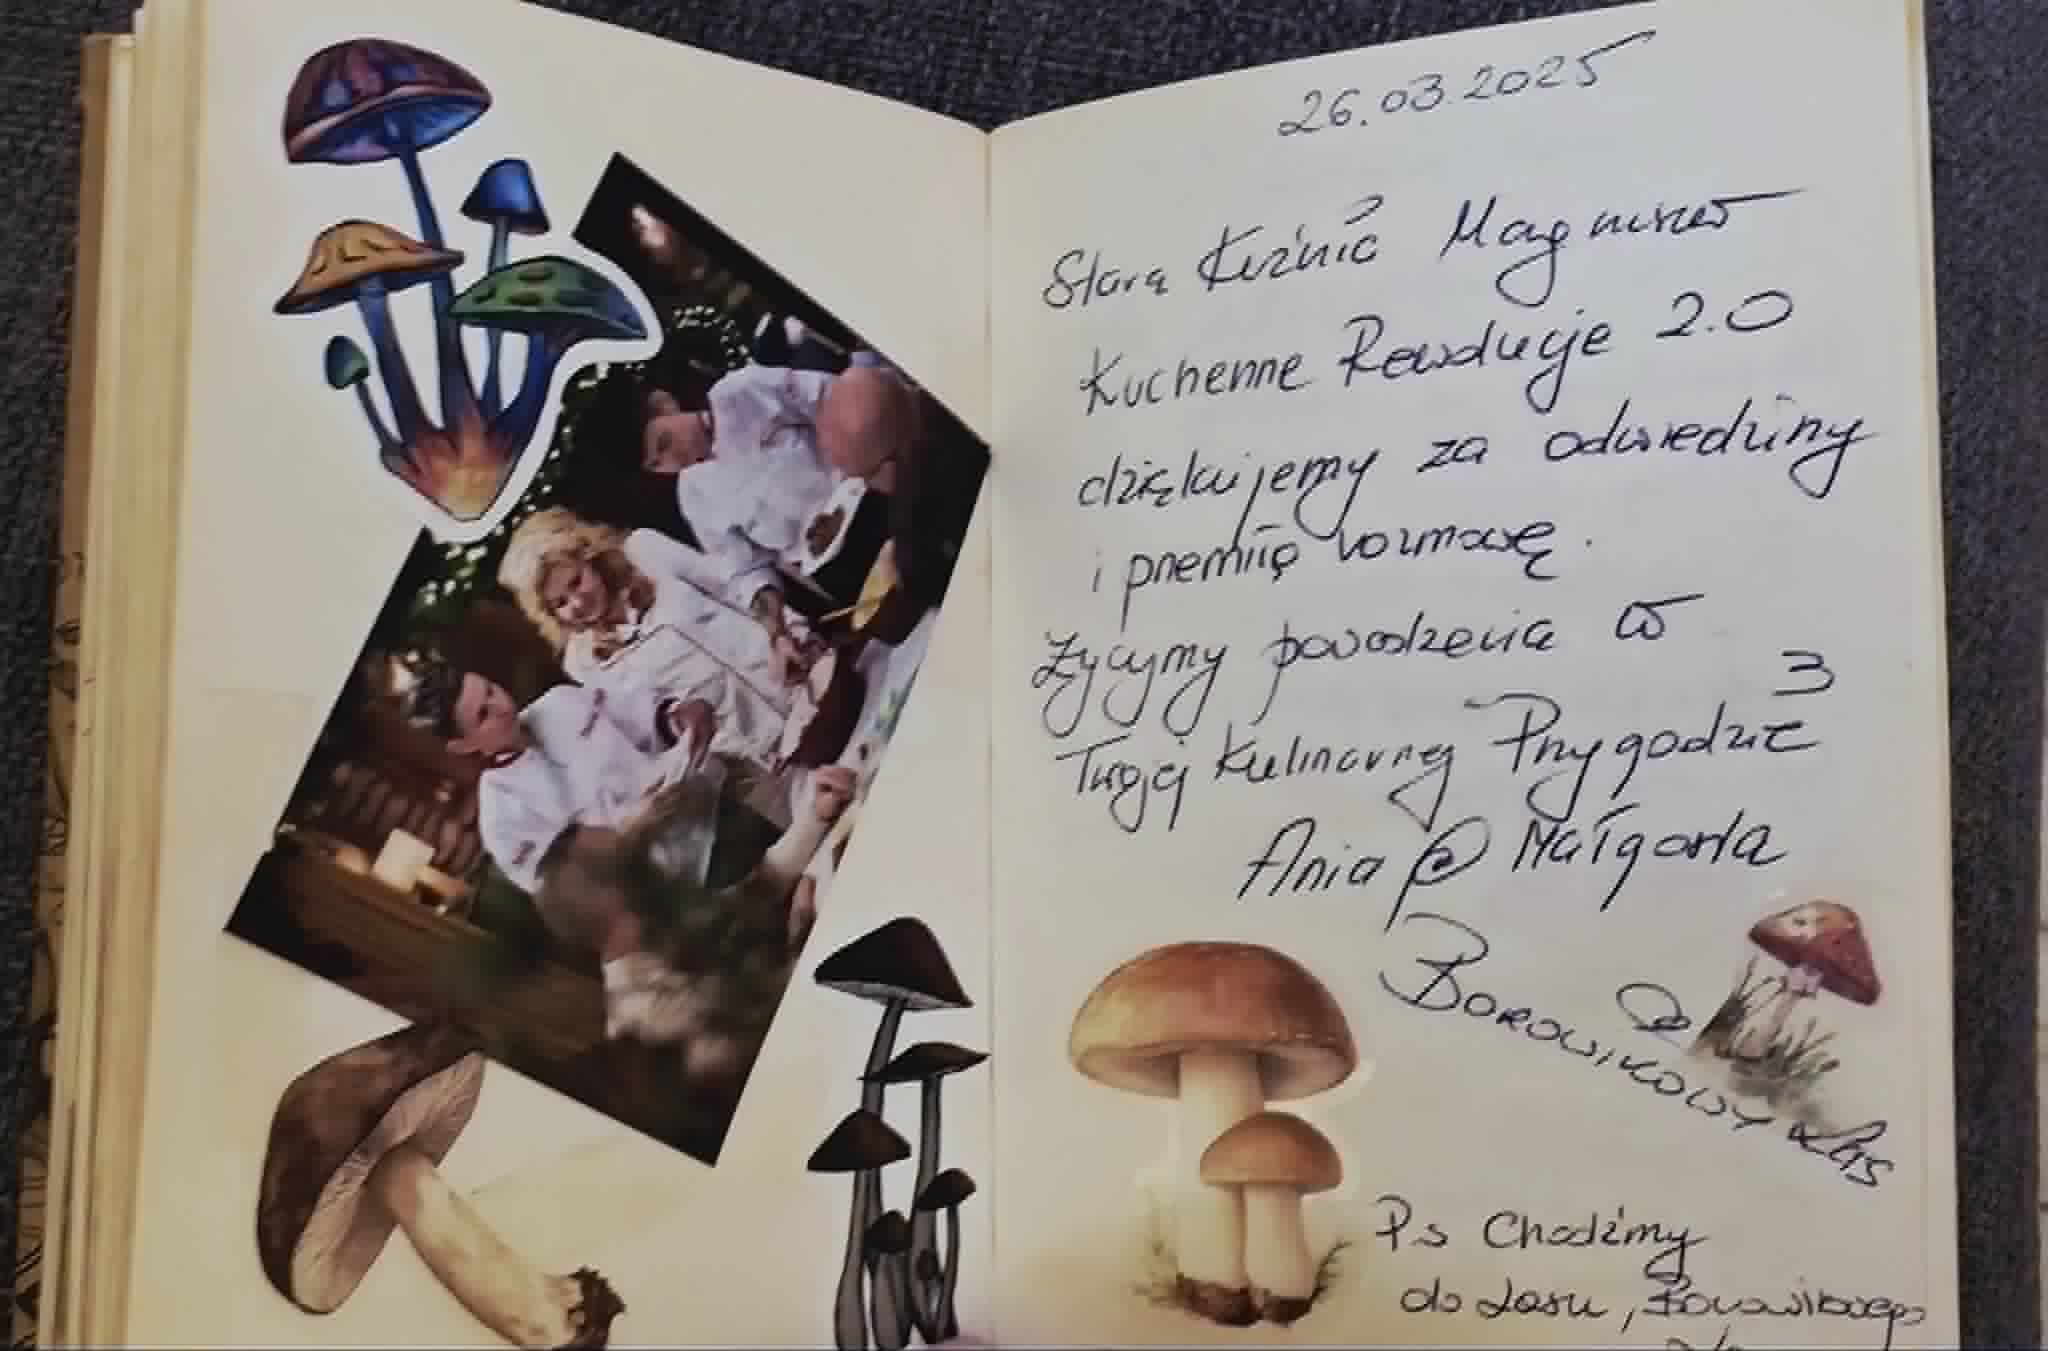 26.03.2025
Stara Kuźnia Magnuszew
Kuchenne Rewolucje 2.0
dziękujemy za odwiedziny
i przemiłą rozmowę.
Życzymy powodzenia w
3
Twojej Kulinarnej Przygodzie
Ania @ Małgosia
Borowikowy Las
Ps Chodźmy
do Lasu, Borowikowego